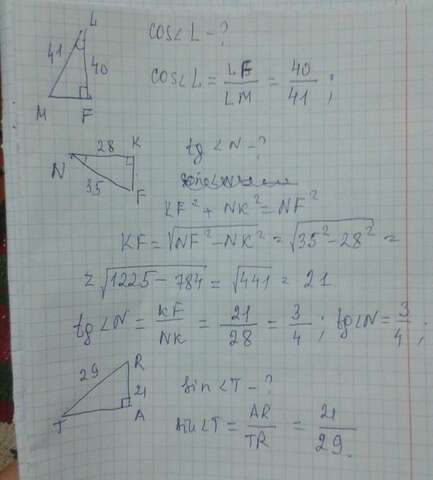 L
41
40
M
F
cos∠L - ?
cos∠L = LF/LM = 40/41 ;
28
K
N
35
F
tg∠N - ?
KF² + NK² = NF²
KF = √NF² - NK² = √35² - 28² =
= √1225 - 784 = √441 = 21
tg∠N = KF/NK = 21/28 = 3/4 ; tg∠N = 3/4 ;
29
R
21
T
A
sin∠T - ?
sin∠T = AR/TR = 21/29.